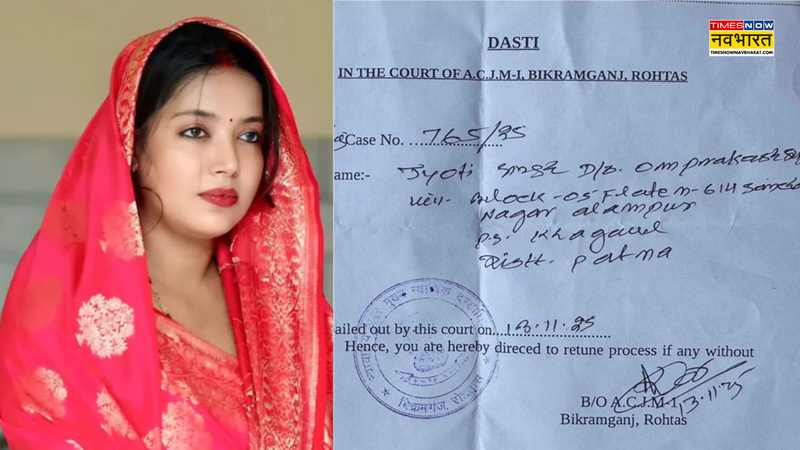 TIMES NOW
नवभारत
TIMESNOWNAVBHARAT.COM
DASTI
IN THE COURT OF A.C.J.M-I, BIKRAMGANJ, ROHTAS
Case No. 765/25
ame:- Jyoti Singh D/o. Omprakash
Block-05 Flate N-614
Nagar Alampur
P.S. Khagaul
Distt. Patna
ailed out by this court on 13.11.25
Hence, you are hereby direced to retune process if any without
13.11.25
B/O A.C.J.M-I
Bikramganj, Rohtas
बिक्रमगंज, रोहतास